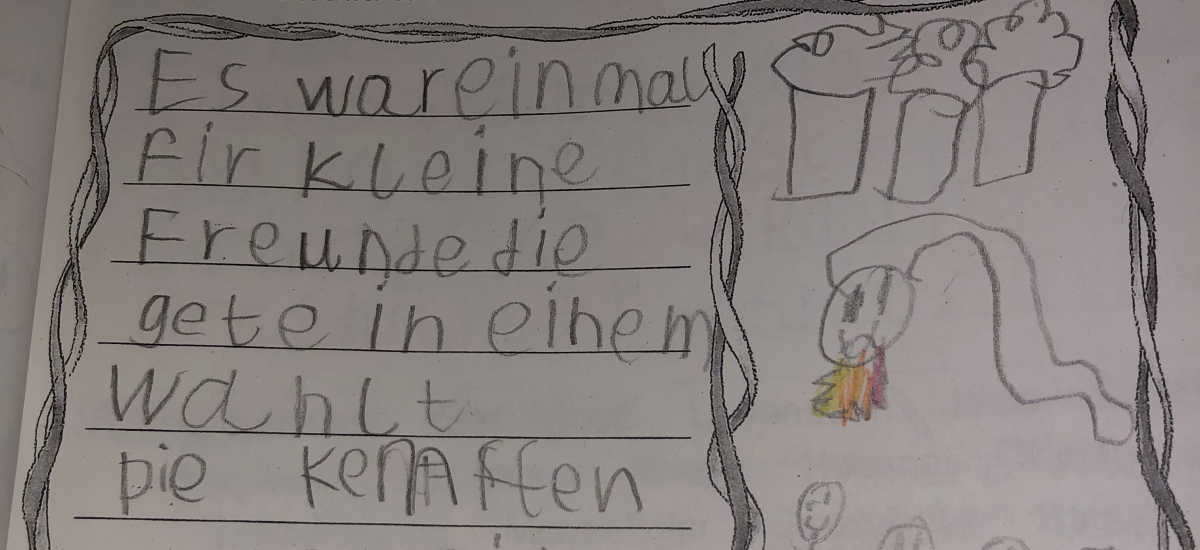 Es war einmal
fir kleine
Freunde die
gete in einem
Wahlt
Die kenAffen